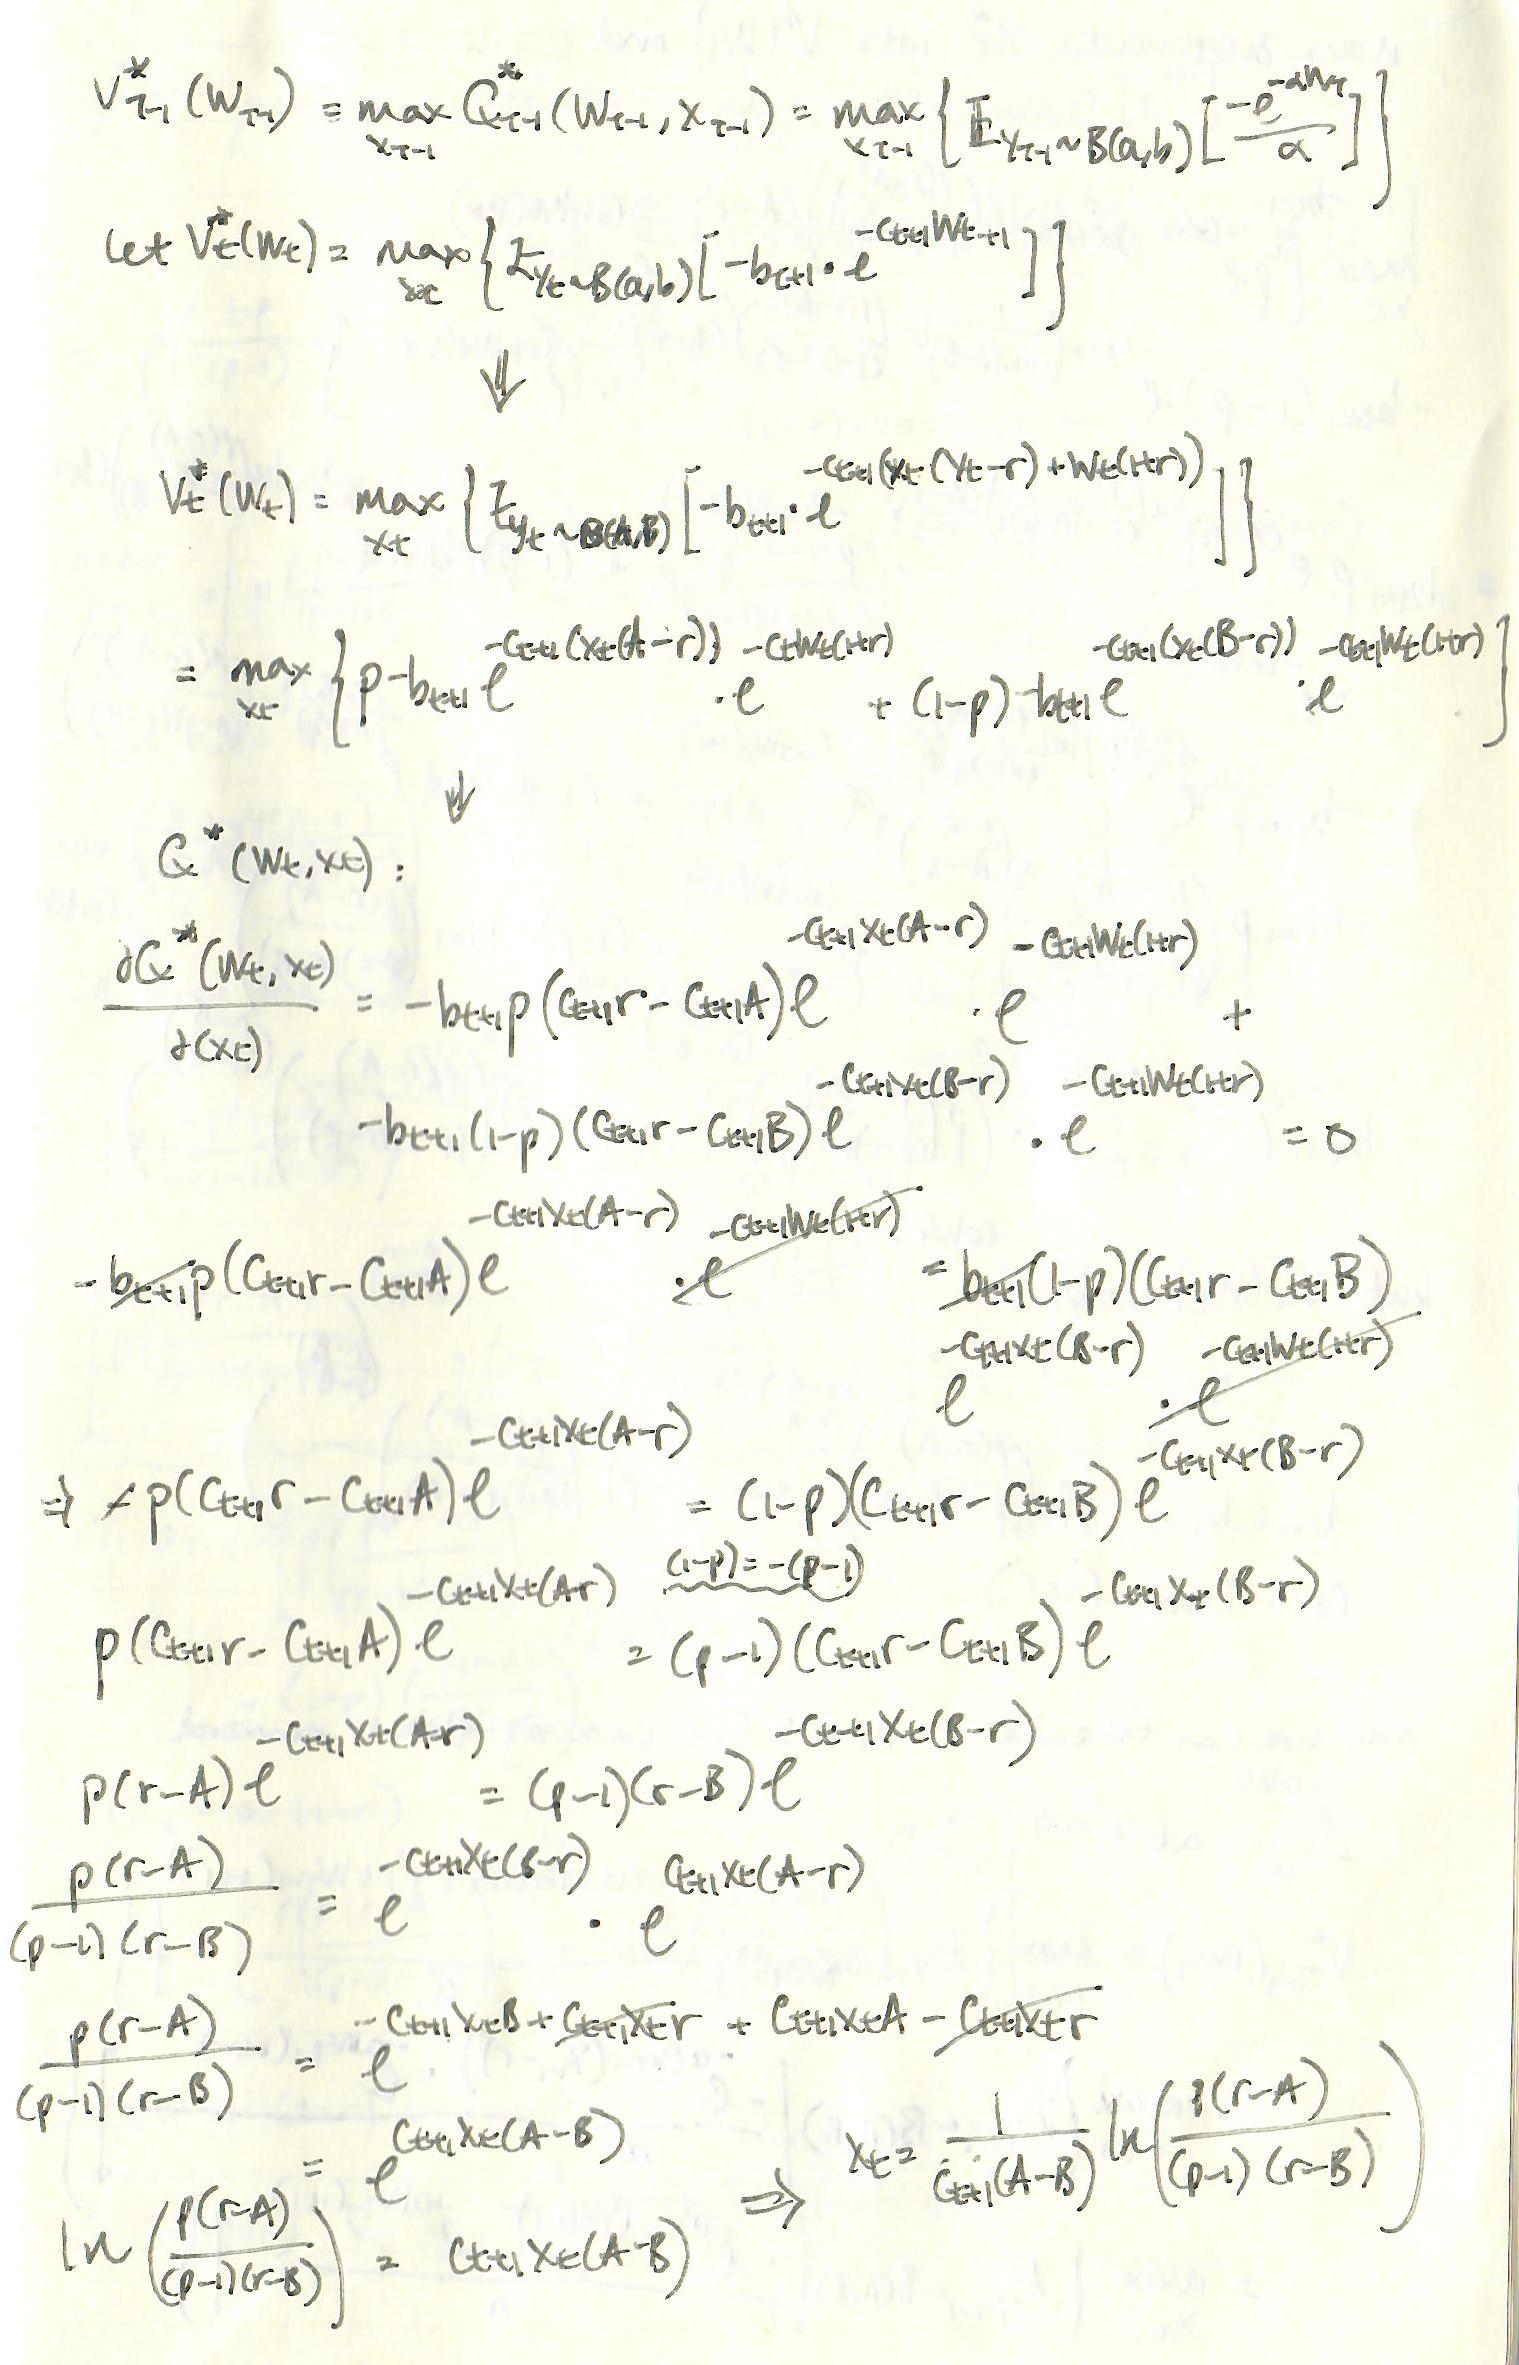 V*_{T-1}(W_{T-1}) = max_{x_{T-1}} Q*_{T-1}(W_{T-1}, x_{T-1}) = max_{x_{T-1}} { E_{Y_{T-1}~B(a,b)} [ -e^{-αW_T} / α ] }
let V*_t(W_t) = max_{x_t} { E_{Y_t~B(a,b)} [ -b_{t+1} · e^{-C_{t+1}W_{t+1}} ] }
⇓
V*_t(W_t) = max_{x_t} { E_{y_t~B(A,B)} [ -b_{t+1} · e^{-C_{t+1}(x_t(Y_t-r)+W_t(1+r))} ] }
= max_{x_t} { p-b_{t+1} e^{-C_{t+1}(x_t(A-r))} · e^{-C_tW_t(1+r)} + (1-p)-b_{t+1} e^{-C_{t+1}(x_t(B-r))} · e^{-C_{t+1}W_t(1+r)} }
⇓
Q*(W_t, x_t) :
∂Q*(W_t, x_t) / ∂(x_t) = -b_{t+1} p (C_{t+1}r - C_{t+1}A) e^{-C_{t+1}x_t(A-r)} · e^{-C_{t+1}W_t(1+r)} +
-b_{t+1} (1-p) (C_{t+1}r - C_{t+1}B) e^{-C_{t+1}x_t(B-r)} · e^{-C_{t+1}W_t(1+r)} = 0
-b_{t+1} p (C_{t+1}r - C_{t+1}A) e^{-C_{t+1}x_t(A-r)} · e^{-C_{t+1}W_t(1+r)} = b_{t+1} (1-p)(C_{t+1}r - C_{t+1}B)
e^{-C_{t+1}x_t(B-r)} · e^{-C_{t+1}W_t(1+r)}
⇒ -p(C_{t+1}r - C_{t+1}A) e^{-C_{t+1}x_t(A-r)} = (1-p)(C_{t+1}r - C_{t+1}B) e^{-C_{t+1}x_t(B-r)}
(1-p) = -(p-1)
p(C_{t+1}r - C_{t+1}A) e^{-C_{t+1}x_t(A-r)} = (p-1)(C_{t+1}r - C_{t+1}B) e^{-C_{t+1}x_t(B-r)}
p(r-A) e^{-C_{t+1}x_t(A-r)} = (p-1)(r-B) e^{-C_{t+1}x_t(B-r)}
p(r-A) / (p-1)(r-B) = e^{-C_{t+1}x_t(B-r)} · e^{C_{t+1}x_t(A-r)}
p(r-A) / (p-1)(r-B) = e^{-C_{t+1}x_tB + C_{t+1}x_tr + C_{t+1}x_tA - C_{t+1}x_tr}
= e^{C_{t+1}x_t(A-B)}
ln( p(r-A) / (p-1)(r-B) ) = C_{t+1}x_t(A-B) ⇒ x_t = 1 / C_{t+1}(A-B) ln( p(r-A) / (p-1)(r-B) )